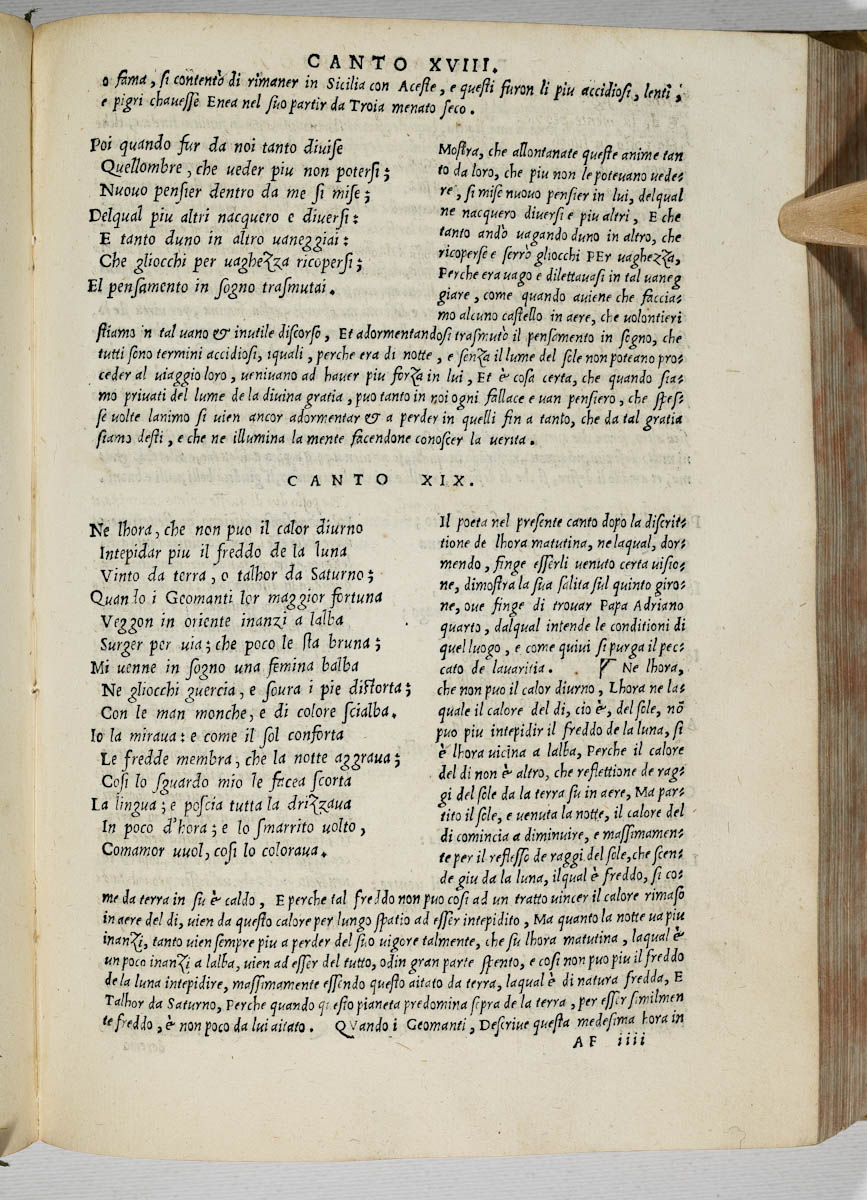 CANTO XVIII.
o fama, si contentò di rimaner in Sicilia con Aceste, e questi furon li piu accidiosi, lenti,
e pigri chavesse Enea nel suo partir da Troia menato seco.
Poi quando fur da noi tanto divise
Quellombre, che veder piu non potersi;
Nuovo pensier dentro da me si mise;
Delqual piu altri nacquero e diversi:
E tanto duno in altro vaneggiai:
Che gliocchi per vaghezza ricopersi;
El pensamento in sogno trasmutai.
Mostra, che allontanate queste anime tan
to da loro, che piu non le potevano vede-
re, si mise nuovo pensier in lui, delqual
ne nacquero diversi e piu altri, E che
tanto andò vagando duno in altro, che
ricoperse e serrò gliocchi PEr vaghezza,
Perche era vago e dilettavasi in tal vaneg
giare, come quando aviene che faccia-
mo alcuno castello in aere, che volontieri
stiamo n tal vano & inutile discorso, Et adormentandosi trasmutò il pensamento in sogno, che
tutti sono termini accidiosi, iquali, perche era di notte, e senza il lume del sole non poteano pro-
ceder al viaggio loro, venivano ad haver piu forza in lui, Et è cosa certa, che quando sia-
mo privati del lume de la divina gratia, puo tanto in noi ogni fallace e van pensiero, che spes-
se volte lanimo si vien ancor adormentar & a perder in quelli fin a tanto, che da tal gratia
siamo desti, e che ne illumina la mente facendone conoscer la verita.
CANTO XIX.
Ne lhora, che non puo il calor diurno
Intepidar piu il freddo de la luna
Vinto da terra, o talhor da Saturno;
Quando i Geomanti lor maggior fortuna
Veggon in oriente inanzi a lalba
Surger per via; che poco le sta bruna;
Mi venne in sogno una femina balba
Ne gliocchi guercia, e sovra i pie distorta;
Con le man monche, e di colore scialba.
Io la mirava: e come il sol conforta
Le fredde membra, che la notte aggrava;
Cosi lo sguardo mio le facea scorta
La lingua; e poscia tutta la drizzava
In poco d'hora; e lo smarrito volto,
Comamor vuol, cosi lo colorava.
Il poeta nel presente canto dopo la discrit-
tione de lhora matutina, ne laqual, dor-
mendo, finge esserli venuto certa visio-
ne, dimostra la sua salita sul quinto giro-
ne, ove finge di trovar Papa Adriano
quarto, dalqual intende le conditioni di
quel luogo, e come quivi si purga il pec-
cato de lavaritia. Ne lhora,
che non puo il calor diurno, Lhora ne la-
quale il calore del di, cio è, del sole, nõ
puo piu intepidir il freddo de la luna, si
è lhora vicina a lalba, Perche il calore
del di non è altro, che reflettione de rag-
gi del sole da la terra su in aere, Ma par-
tito il sole, e venuta la notte, il calore del
di comincia a diminuire, e massimamen-
te per il reflesso de raggi del sole, che scen-
de giu da la luna, ilqual è freddo, si co-
me da terra in su è caldo, E perche tal freddo non puo cosi ad un tratto vincer il calore rimaso
in aere del di, vien da questo calore per lungo spatio ad esser intepidito, Ma quanto la notte va piu
inanzi, tanto vien sempre piu a perder del suo vigore talmente, che su lhora matutina, laqual è
un poco inanzi a lalba, vien ad esser del tutto, o din gran parte spento, e cosi non puo piu il freddo
de la luna intepidire, massimamente essendo questo aitato da terra, laqual è di natura fredda, E
Talhor da Saturno, Perche quando questo pianeta predomina sopra de la terra, per esser similmen
te freddo, è non poco da lui aitato. QVando i Geomanti, Descrive questa medesima hora in
AF iiii